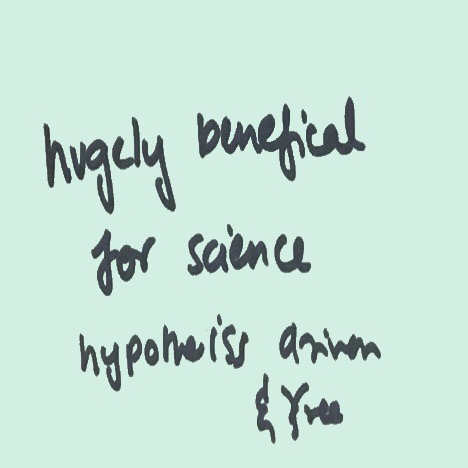 hugely benefical
for science
hypothesiss driven
& free